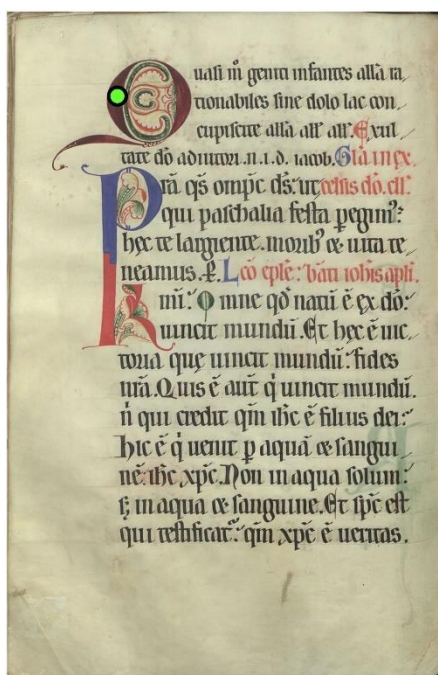 Quasi m̄ geniti infantes allā ra
tionabiles sine dolo lac con
cupiscite allā all' all'. Exul
tate dō adiutori .n.i.d. iacob. Glā in ex
Prā qs̄ omp̄c ds̄: ut celsis dō. ell'.
qui paschalia festa pegim⁹:
hęc te largiente. morib⁹ & uita te
neamus. ꝑ. Lc̄o ep̄le: bāti ioh̄is apl̄i.
Km̄i: Omne qd̄ natū ē ex dō:
uincit mundū. Et hęc ē uic
toria quę uincit mundū: fides
nr̄a. Quis ē aut̄ q̇ uincit mundū.
n̄ qui credit qm̄ ih̄c ē filius dei:
hic ē q̇ uenit ꝑ aquā & sangui
nē. ih̄c xp̄c. Non in aqua solum:
s; in aqua & sanguine. Et sp̄c est
qui testificat᷑: qm̄ xp̄c ē ueritas.